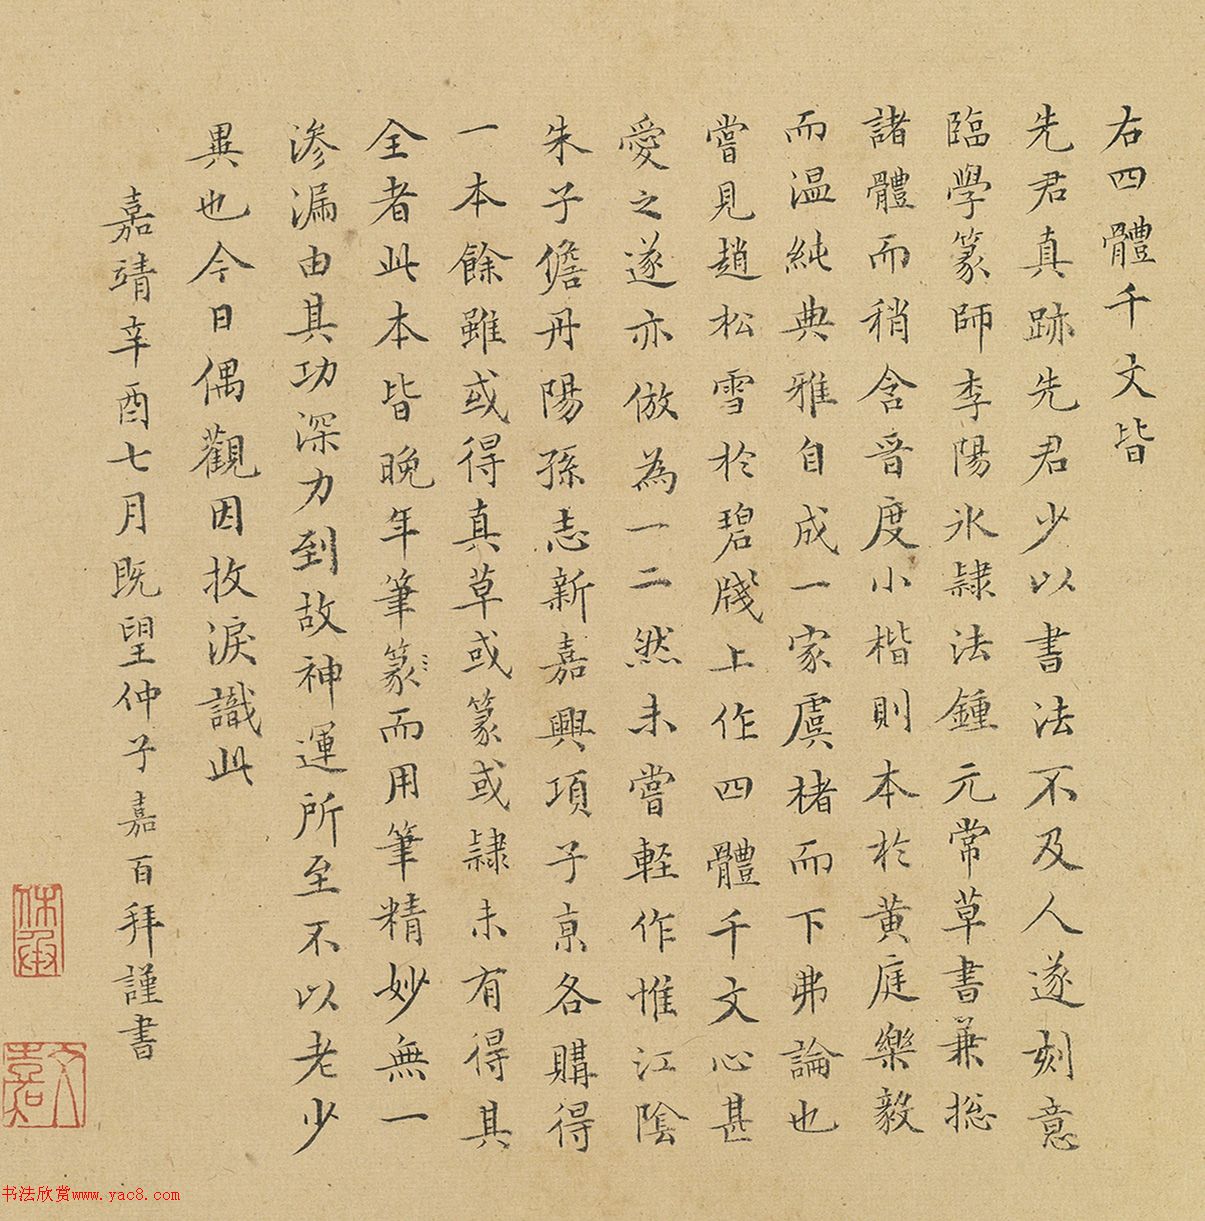 右四體千文皆
先君真跡先君少以書法不及人遂刻意
臨學篆師李陽冰隷法鍾元常草書兼捴
諸體而稍含晉度小楷則本於黄庭樂毅
而温純典雅自成一家虞褚而下弗論也
嘗見趙松雪於碧牋上作四體千文心甚
愛之遂亦倣為一二然未嘗輕作惟江陰
朱子儋丹陽孫志新嘉興項子京各購得
一本餘雖或得真草或篆或隷未有得其
全者此本皆晚年筆篆而用筆精妙無一
滲漏由其功深力到故神運所至不以老少
異也今日偶觀因抆淚識此
嘉靖辛酉七月既望仲子嘉百拜謹書
休承
文嘉
书法欣赏www.yac8.com